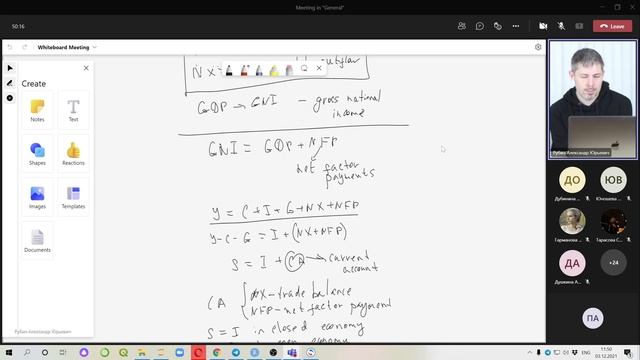 Meeting in "General"
50:16
Leave
Whiteboard Meeting
NX
GDP → GNI – gross national
income
GNI = GDP + NFP
net factor
payments
Y = C + I + G + NX + NFP
Y-C-G = I + (NX+NFP)
S = I + CA → current
account
CA { NX – trade balance
NFP – net factor payment
S = I in closed economy
Create
Notes
Text
Shapes
Reactions
Images
Templates
Documents
Рубан Александр Юрьевич
Рубан Александр Юрьевич
ДО
ЮВ
Дубинина
Юношева
Германова
Тарасова С
ДА
+24
Душкина А
ПА
ENG
11:50
03.12.2021